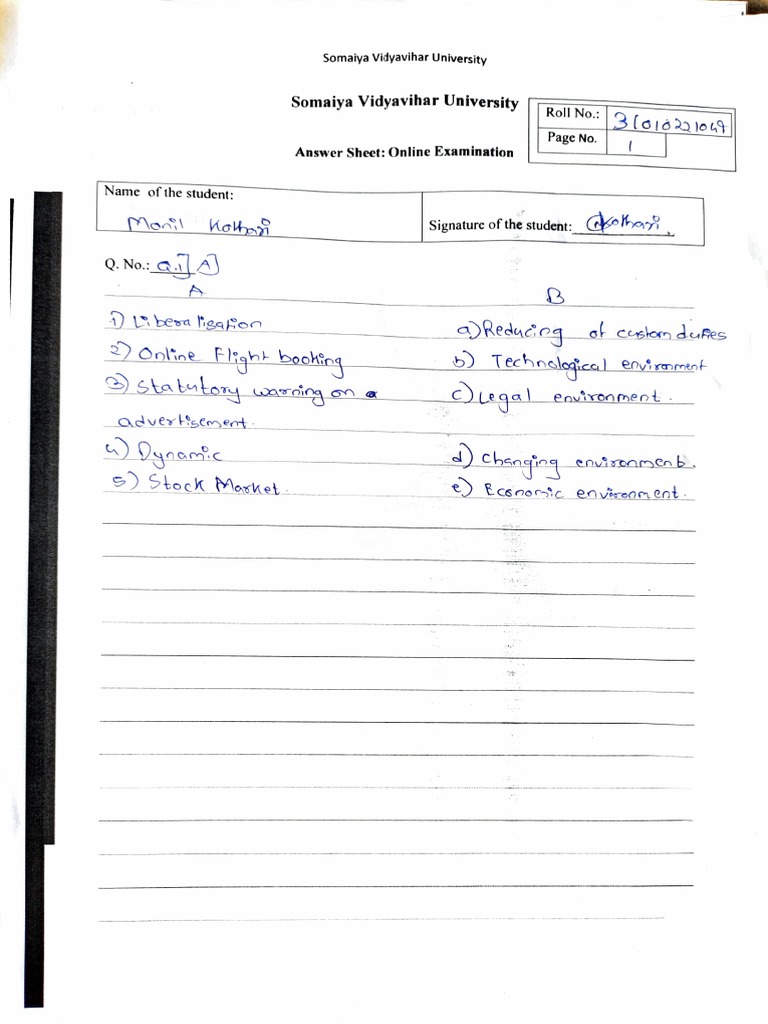 Somaiya Vidyavihar University
Somaiya Vidyavihar University
Roll No.: 31010221049
Answer Sheet: Online Examination
Page No. 1
Name of the student:
Manil Kothari
Signature of the student: Kothari.
Q. No.: Q.1] A]
A B
1) Liberalisation a) Reducing of custom duties
2) Online Flight booking b) Technological environment
3) Statutory warning on a c) Legal environment.
advertisement.
4) Dynamic d) Changing environment.
5) Stock Market. e) Economic environment.